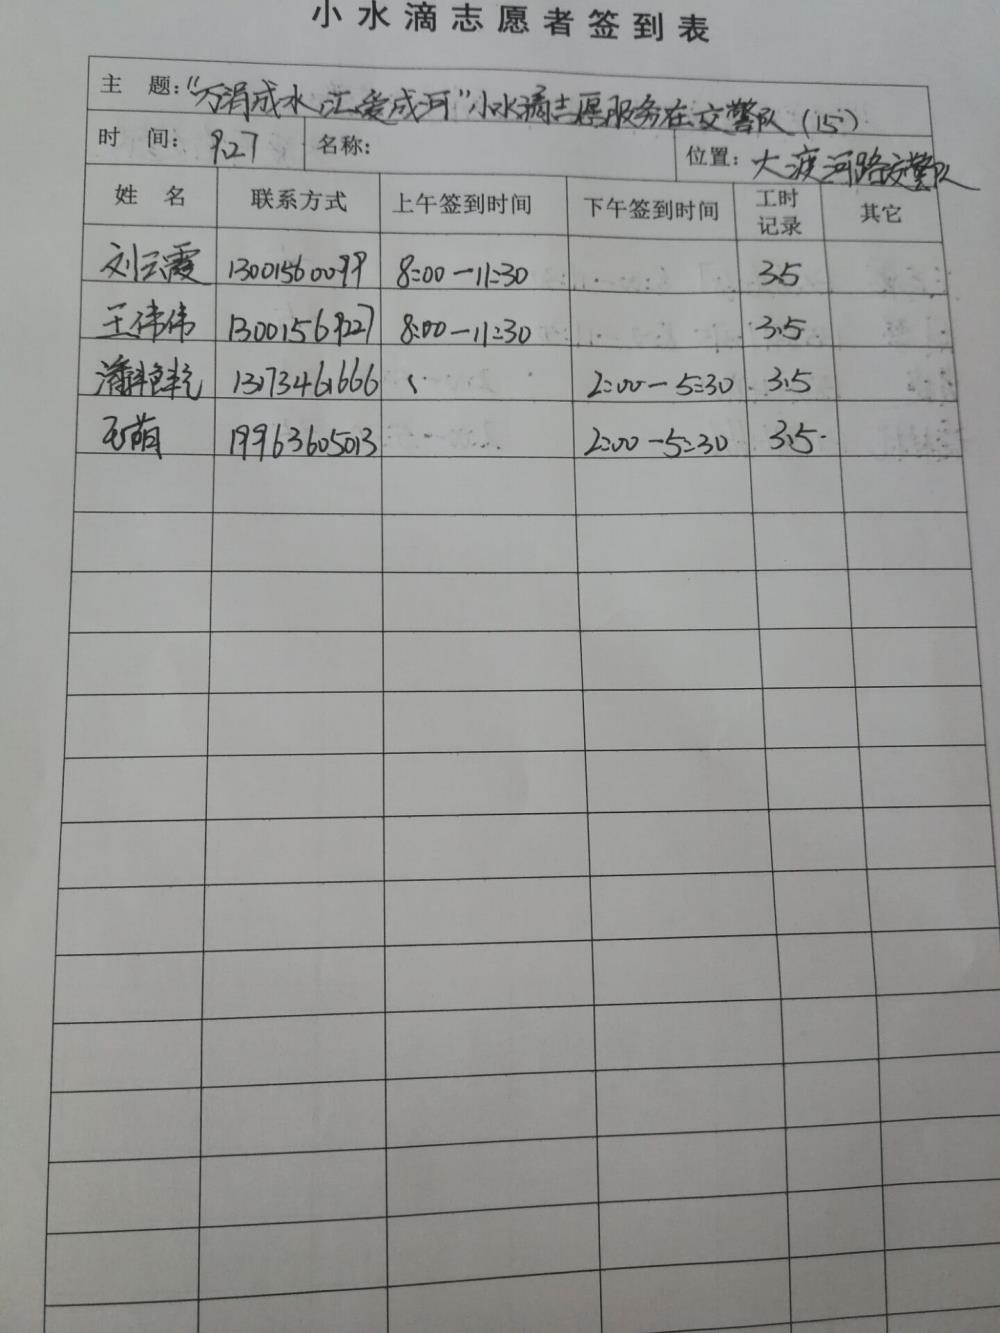 小水滴志愿者签到表
主 题："万涓成水 汇爱成河"小水滴志愿服务在交警队（15）
时 间： 9.27 名称： 位置：大渡河路交警队
姓 名 联系方式 上午签到时间 下午签到时间 工时记录 其它
刘云霞 13001560099 8:00-11:30 3.5
王伟伟 13001569227 8:00-11:30 3.5
潘 13173461666 2:00-5:30 3.5
萌 19963605013 2:00-5:30 3.5